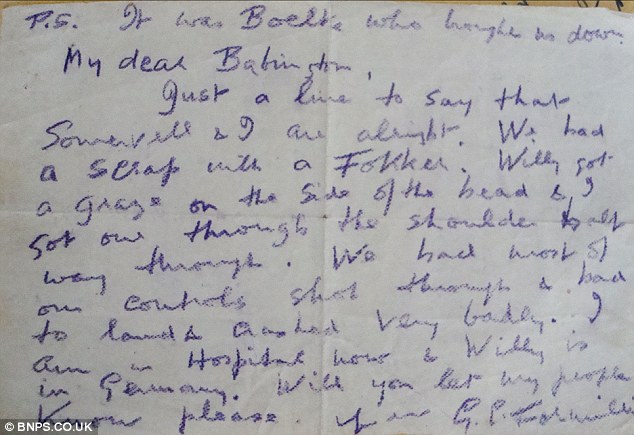 P.S. It was Boelke who brought us down
My dear Babington,
Just a line to say that
Somervell & I are alright. We had
a scrap with a Fokker. Willy got
a graze on the side of the head & I
got one through the shoulder half
way through. We had most of
our controls shot through & had
to land & crashed very badly. I
am in Hospital now & Willy is
in Germany. Will you let my people
know please. G.E. Formilli
© BNPS.CO.UK